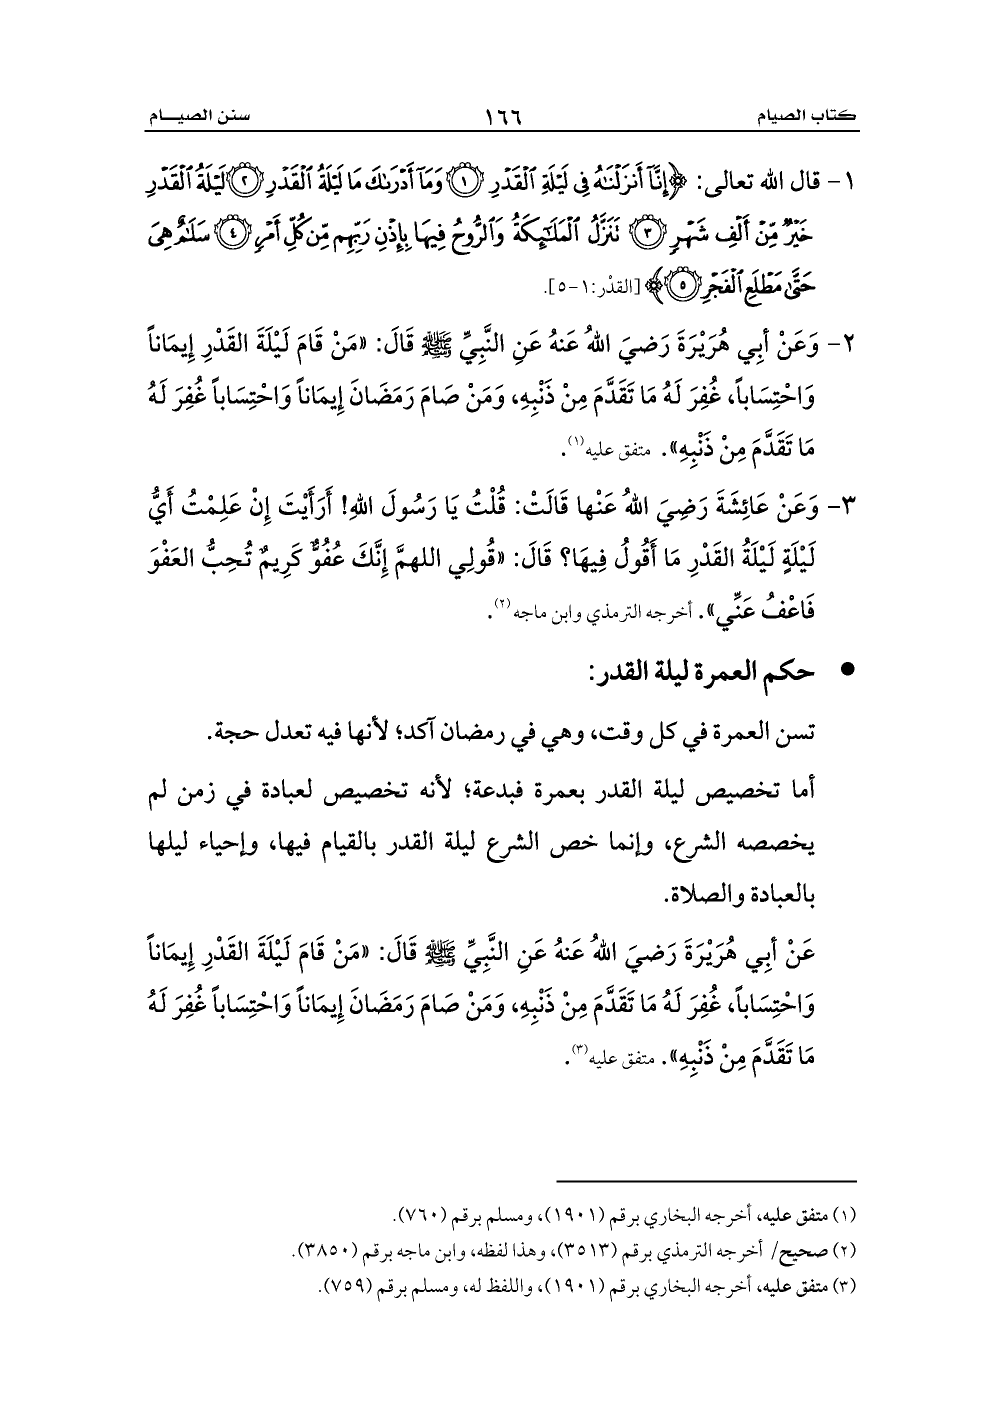 كتاب الصيام ١٦٦ سنن الصيـــام
١- قال الله تعالى: ﴿إِنَّآ أَنزَلْنَٰهُ فِى لَيْلَةِ ٱلْقَدْرِ ۝١ وَمَآ أَدْرَىٰكَ مَا لَيْلَةُ ٱلْقَدْرِ ۝٢ لَيْلَةُ ٱلْقَدْرِ
خَيْرٌ مِّنْ أَلْفِ شَهْرٍ ۝٣ تَنَزَّلُ ٱلْمَلَٰٓئِكَةُ وَٱلرُّوحُ فِيهَا بِإِذْنِ رَبِّهِم مِّن كُلِّ أَمْرٍ ۝٤ سَلَٰمٌ هِىَ
حَتَّىٰ مَطْلَعِ ٱلْفَجْرِ ۝٥﴾ [القدْر:١-٥].
٢- وَعَنْ أبِي هُرَيْرَةَ رَضيَ اللهُ عَنهُ عَنِ النَّبِيِّ ﷺ قَالَ: «مَنْ قَامَ لَيْلَةَ القَدْرِ إيمَاناً
وَاحْتِسَاباً، غُفِرَ لَهُ مَا تَقَدَّمَ مِنْ ذَنْبِهِ، وَمَنْ صَامَ رَمَضَانَ إيمَاناً وَاحْتِسَاباً غُفِرَ لَهُ
مَا تَقَدَّمَ مِنْ ذَنْبِهِ». متفق عليه(١).
٣- وَعَنْ عَائِشَةَ رَضِيَ اللهُ عَنْها قَالَتْ: قُلْتُ يَا رَسُولَ اللهِ! أَرَأَيْتَ إنْ عَلِمْتُ أَيُّ
لَيْلَةٍ لَيْلَةُ القَدْرِ مَا أَقُولُ فِيهَا؟ قَالَ: «قُولِي اللهمَّ إنَّكَ عُفُوٌّ كَرِيمٌ تُحِبُّ العَفْوَ
فَاعْفُ عَنِّي». أخرجه الترمذي وابن ماجه(٢).
● حكم العمرة ليلة القدر:
تسن العمرة في كل وقت، وهي في رمضان آكد؛ لأنها فيه تعدل حجة.
أما تخصيص ليلة القدر بعمرة فبدعة؛ لأنه تخصيص لعبادة في زمن لم
يخصصه الشرع، وإنما خص الشرع ليلة القدر بالقيام فيها، وإحياء ليلها
بالعبادة والصلاة.
عَنْ أبِي هُرَيْرَةَ رَضيَ اللهُ عَنهُ عَنِ النَّبِيِّ ﷺ قَالَ: «مَنْ قَامَ لَيْلَةَ القَدْرِ إيمَاناً
وَاحْتِسَاباً، غُفِرَ لَهُ مَا تَقَدَّمَ مِنْ ذَنْبِهِ، وَمَنْ صَامَ رَمَضَانَ إيمَاناً وَاحْتِسَاباً غُفِرَ لَهُ
مَا تَقَدَّمَ مِنْ ذَنْبِهِ». متفق عليه(٣).
(١) متفق عليه، أخرجه البخاري برقم (١٩٠١)، ومسلم برقم (٧٦٠).
(٢) صحيح/ أخرجه الترمذي برقم (٣٥١٣)، وهذا لفظه، وابن ماجه برقم (٣٨٥٠).
(٣) متفق عليه، أخرجه البخاري برقم (١٩٠١)، واللفظ له، ومسلم برقم (٧٥٩).